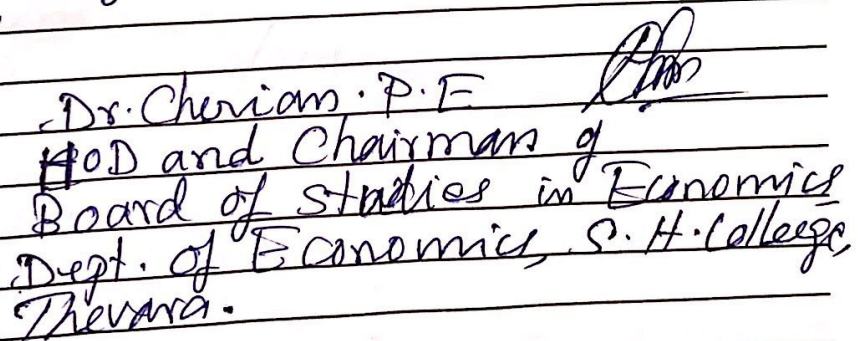 Dr. Cherian. P. E
HOD and Chairman of
Board of Studies in Economics
Dept. of Economics, S. H. College,
Thevara.